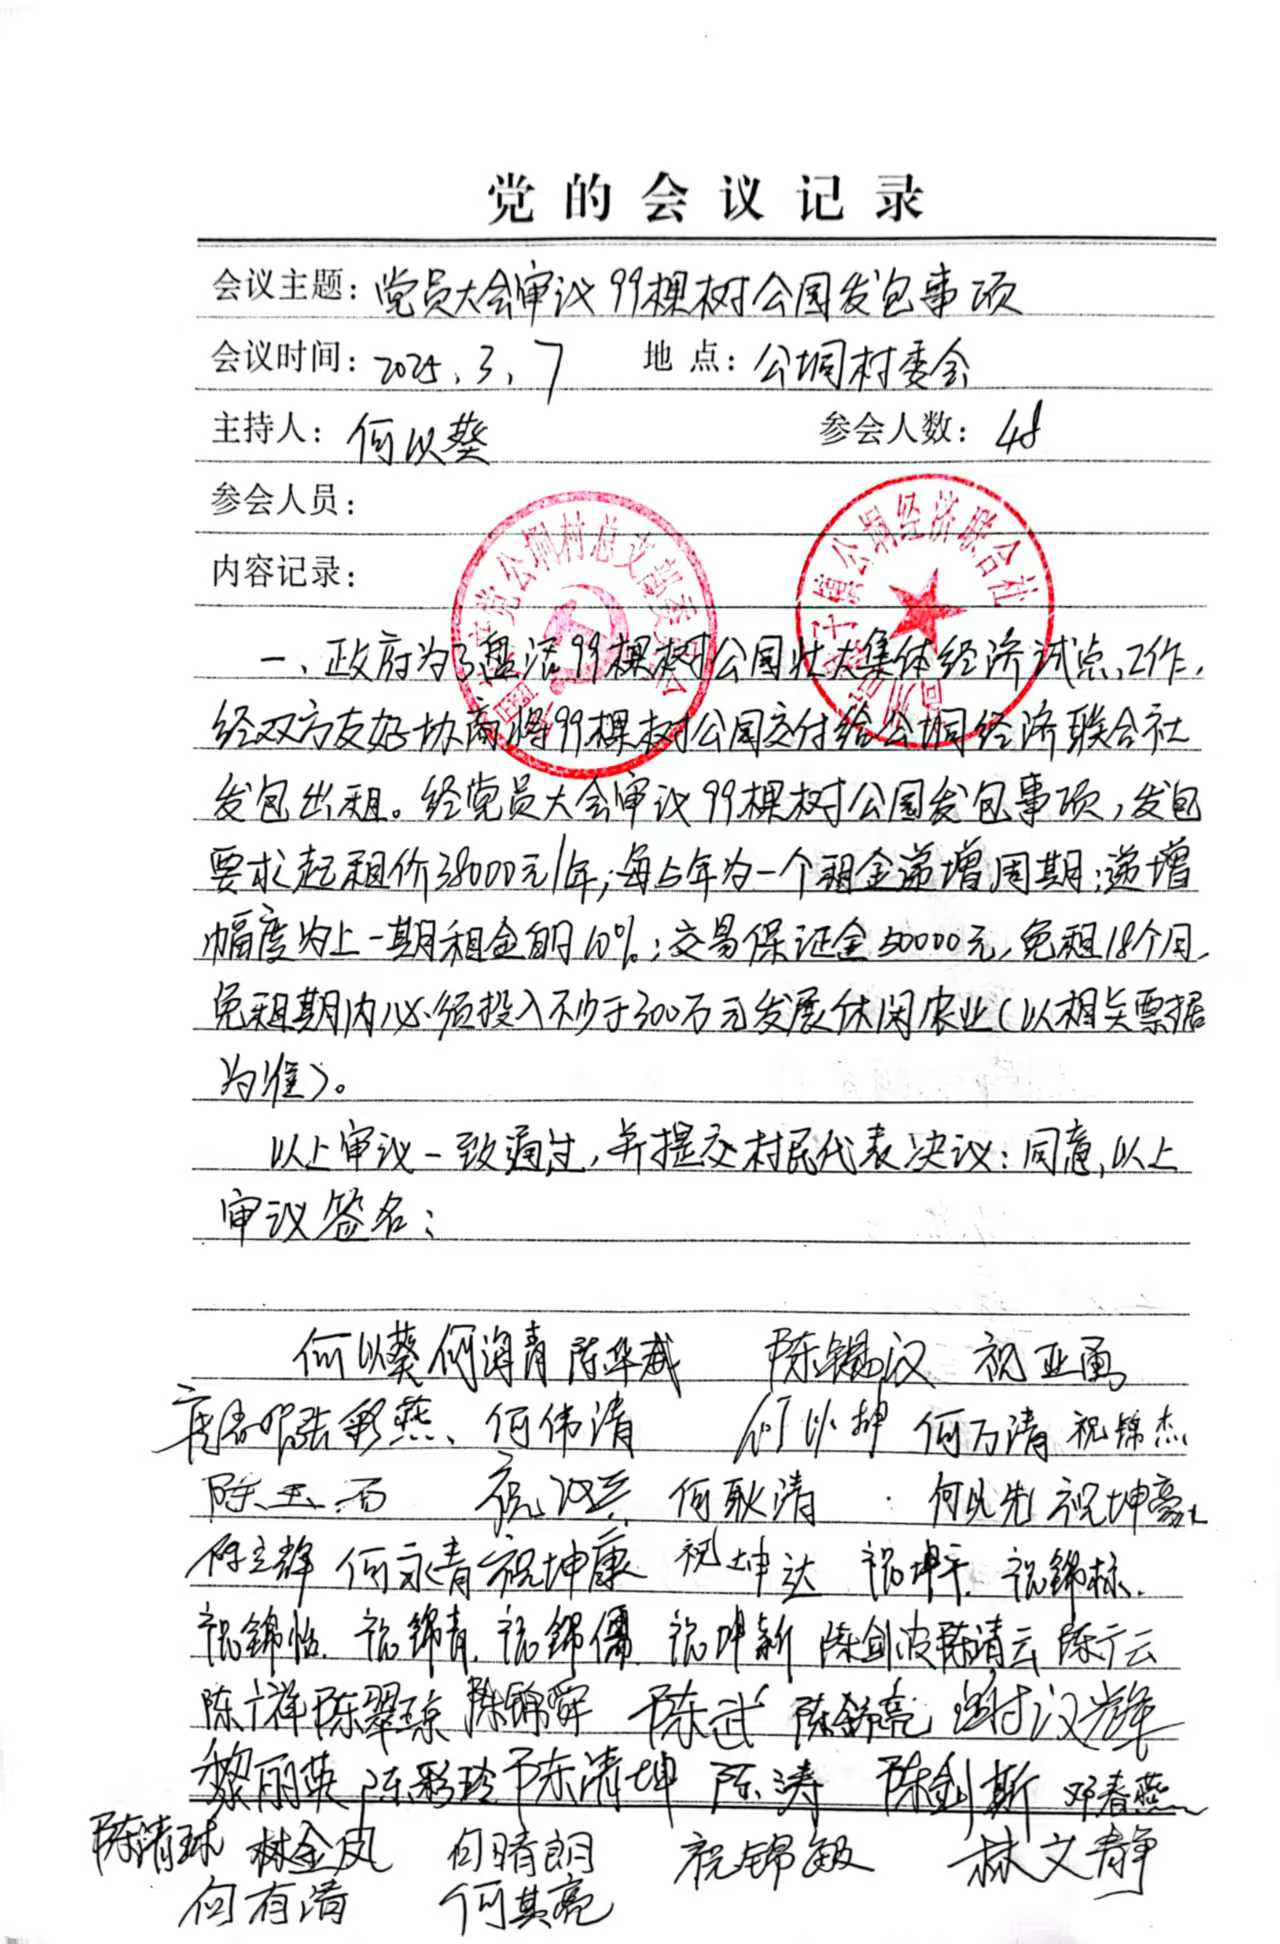 党的会议记录
会议主题：党员大会审议99棵树公园发包事项
会议时间：2025.3.7 地点：公垌村委会
主持人：何以葵 参会人数：48
参会人员：
内容记录：
公垌村总支部委
公垌经济联合社
一、政府为了盘活99棵树公园壮大集体经济试点工作，
经双方友好协商将99棵树公园交付给公垌经济联合社
发包出租。经党员大会审议99棵树公园发包事项，发包
要求起租价38000元/年；每5年为一个租金递增周期；递增
幅度为上一期租金的10%；交易保证金50000元，免租18个月，
免租期内必须投入不少于300万元发展休闲农业（以相关票据
为准）。
以上审议一致通过，并提交村民代表决议：同意，以上
审议签名：
何以葵 何海青 陈华威 陈锡汉 祝亚
张彩燕 何伟清 何以坤 何万清 祝锦杰
陈玉石 祝汉兴 何耿清 何以先 祝坤豪
陈立辉 何永青 祝坤康 祝坤达 祝坤平 祝锦标
祝锦怡 祝锦青 祝锦儒 祝坤新 陈剑波 陈清云 陈广云
陈广祥 陈翠琼 陈锦舜 陈武 陈舒亮 汉辉
黎丽英 陈彩玲 陈清坤 陈涛 陈剑斯 邓春燕
陈清球 林金凤 何晴朗 祝锦敏 林文静
何有清 何其亮